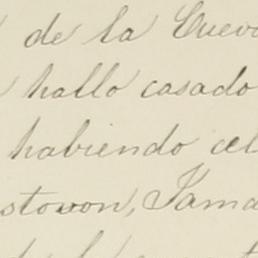 de la Cueva
hallo casado
habiendo cel
stovon, Jama